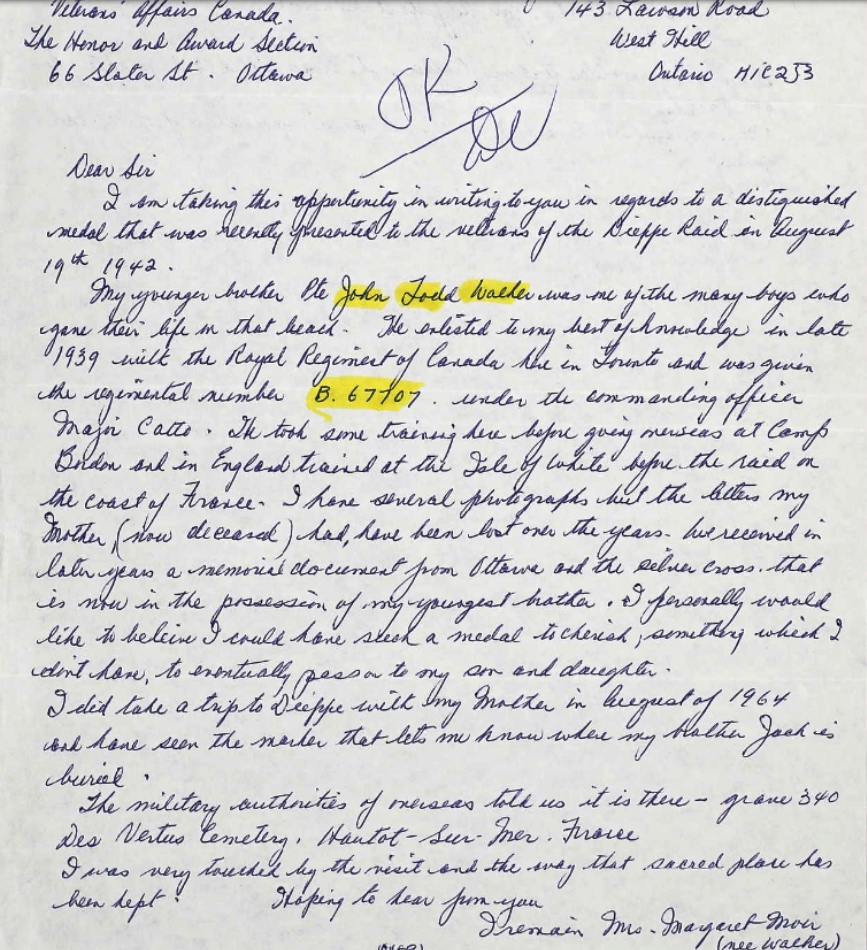 Veterans' Affairs Canada.
143 Lawson Road
The Honor and Award Section
West Hill
66 Slater St. Ottawa
Ontario M1C2J3
OK
Dear Sir
I am taking this opportunity in writing to you in regards to a distinguished
medal that was recently presented to the veterans of the Dieppe Raid in August
19th 1942.
My younger brother Pte John Todd Walker was one of the many boys who
gave their life on that beach. He enlisted to my best of knowledge in late
1939 with the Royal Regiment of Canada here in Toronto and was given
the regimental number B. 67707. under the commanding officer
Major Catto. He took some training here before going overseas at Camp
Bordon and in England trained at the Isle of White before the raid on
the coast of France. I have several photographs but the letters my
Mother, (now deceased) had, have been lost over the years. We received in
later years a memorial document from Ottawa and the silver cross. that
is now in the possession of my youngest brother. I personally would
like to beleive I could have such a medal to cherish, something which I
don't have, to eventually pass on to my son and daughter.
I did take a trip to Dieppe with my Mother in August of 1964
and have seen the marker that lets me know where my brother Jack is
buried.
The military authorities of overseas told us it is there - grave 340
Des Vertus Cemetery. Hautot-Sur-Mer. France
I was very touched by the visit and the way that sacred place has
been kept. Hoping to hear from you
I remain Mrs. Margaret Moir
(nee Walker)